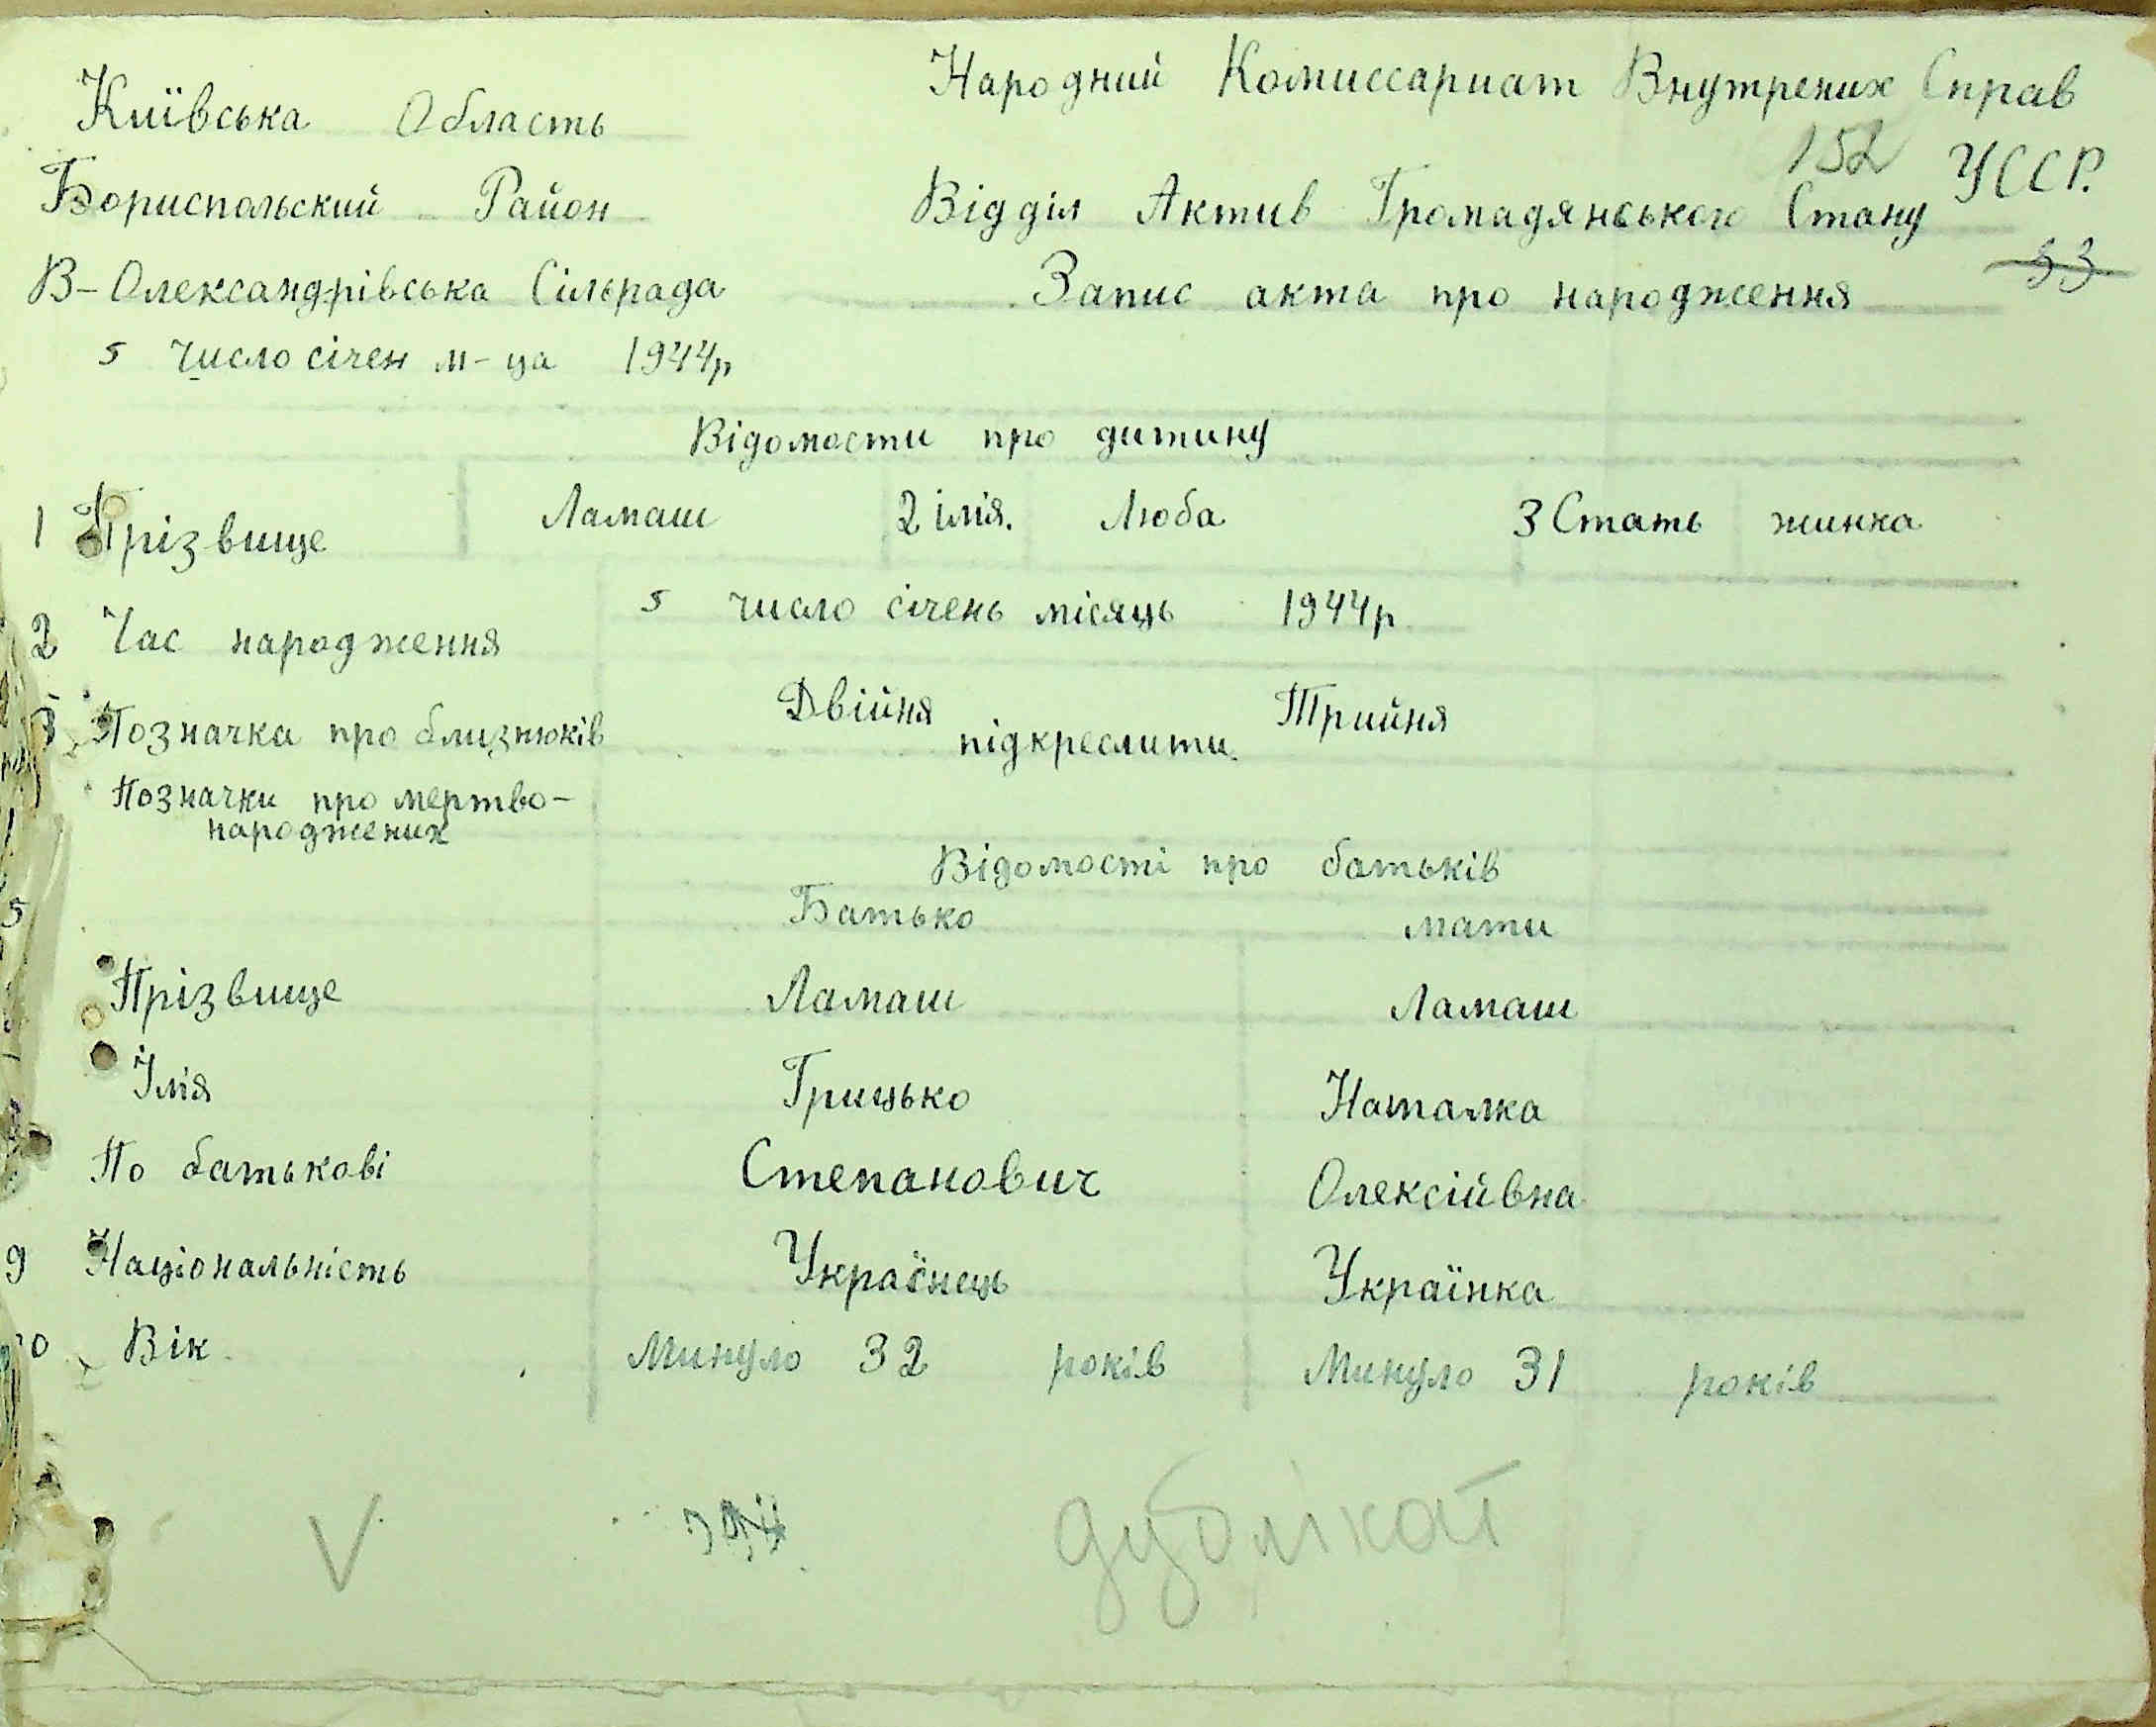 Народний Комиссариат Внутрених Справ
Київська Область
152 УССР.
Бориспольский Район
Відділ Актив Громадянського Стану
33
В-Олександрівська Сільрада
Запис акта про народження
5 число січен м-ца 1944р
Відомости про дитину
1 Прізвище Ламаш 2 імя. Люба 3 Стать жинка
2 Час народження 5 число січень місяць 1944р
3 Позначка про близнюків Двійня підкреслити Трийня
Позначки про мертво-
народжених
Відомості про батьків
5 Батько мати
Прізвище Ламаш Ламаш
Імія Грицько Наталка
По батькові Степанович Олексіївна
9 Національність Українець Українка
10 Вік Минуло 32 років Минуло 31 років
V дублікат